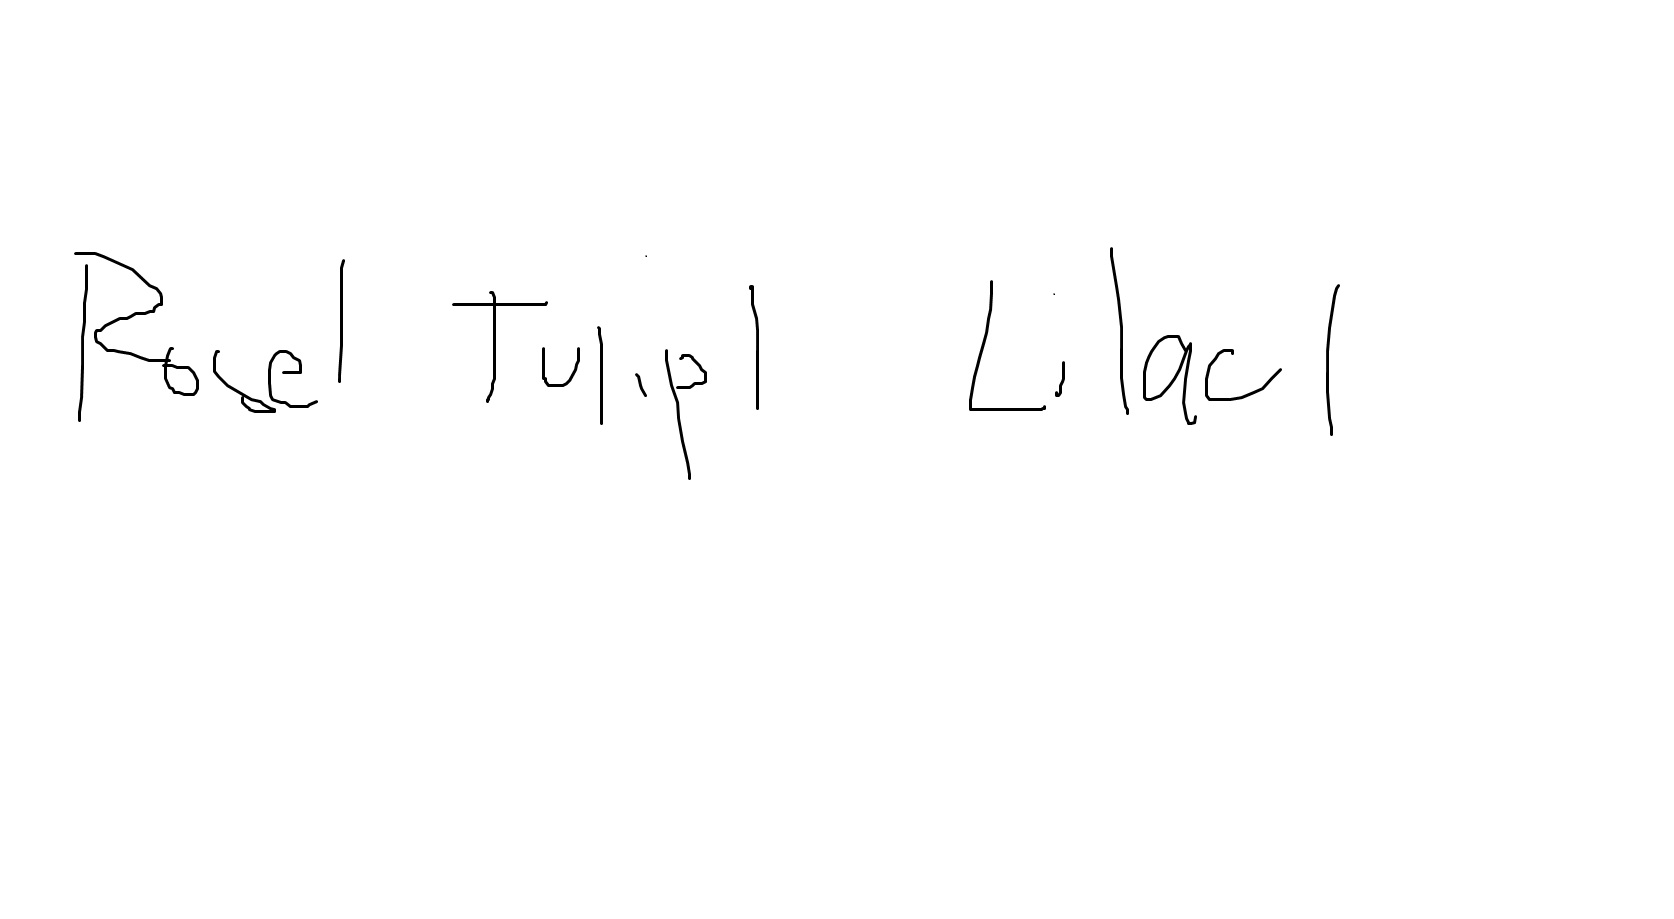 Rose| Tulip| Lilac|